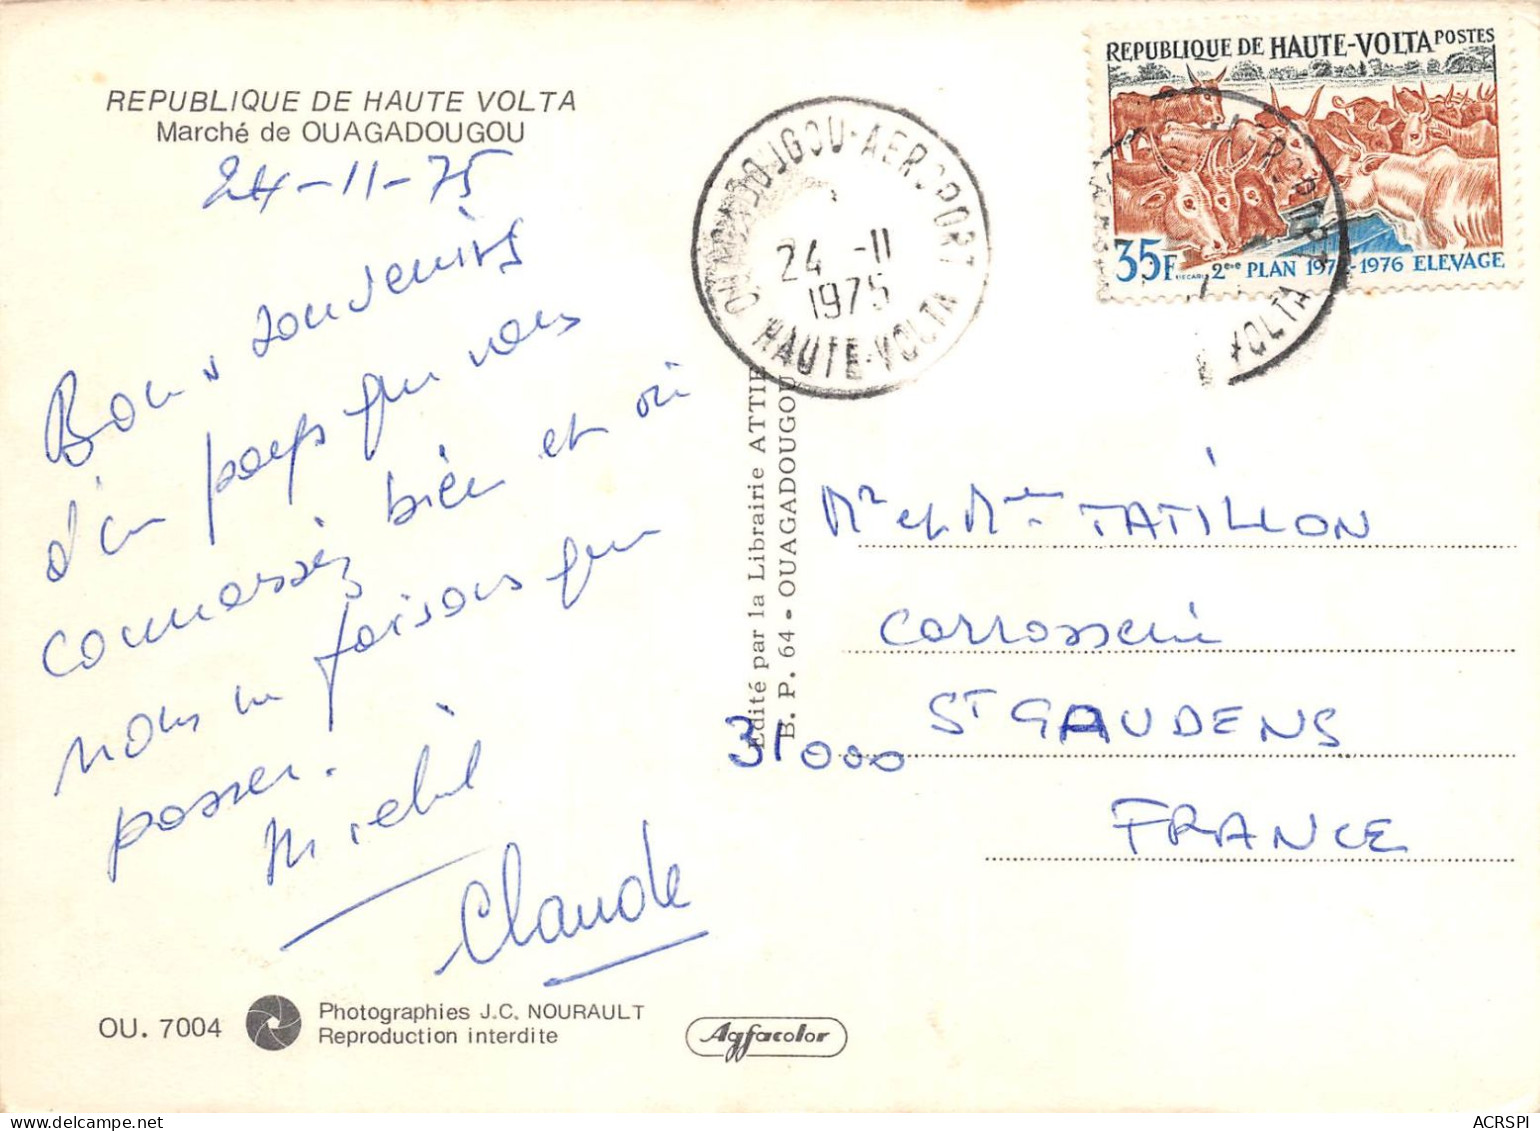 REPUBLIQUE DE HAUTE VOLTA
Marché de OUAGADOUGOU
24-11-75
Bons souvenirs
d'un pays que vous
connaissez bien et où
nous ne faisons que
passer.
Michel
Claude
OU. 7004
Photographies J.C. NOURAULT
Reproduction interdite
Agfacolor
Edité par la Librairie ATTIE
B. P. 64 - OUAGADOUGOU
OUAGADOUGOU-AEROPORT
24 -11
1975
HAUTE-VOLTA
REPUBLIQUE DE HAUTE-VOLTA POSTES
35F
2ème PLAN 1972-1976 ELEVAGE
VOLTA
Mr et Mme TATILLON
Carrosserie
ST GAUDENS
31000
FRANCE
ACRSPI